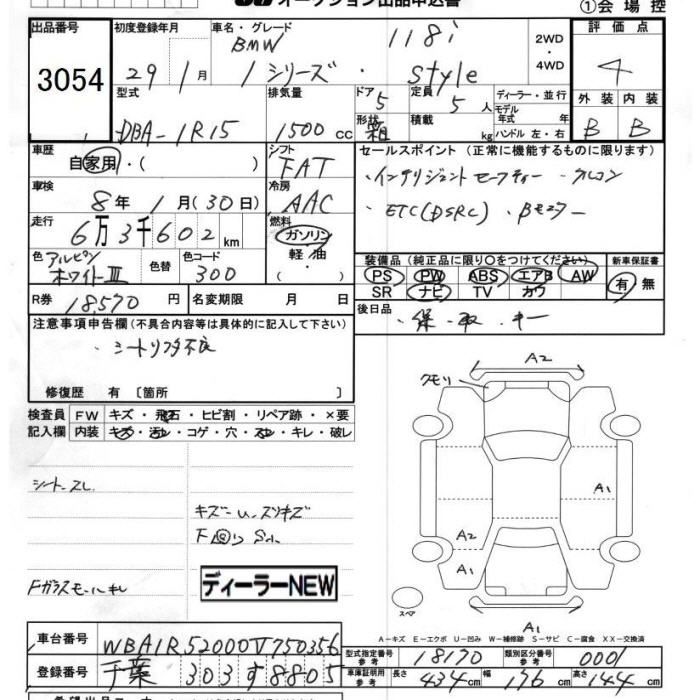 オークション出品申込書
①会場控
出品番号 3054
初度登録年月 29年1月
車名・グレード BMW 118i
1シリーズ・style
2WD・4WD
評価点 4
外装 B 内装 B
型式 DBA-1R15
排気量 1500cc
ドア 5 形状 箱
定員 5人 積載 kg
ディーラー・並行
モデル年式 年
ハンドル 左・右
車歴 自家用・( )
シフト FAT
セールスポイント (正常に機能するものに限ります)
・インテリジェントセーフティー・アルコン
・ETC(DSRC)・Bモニター
車検 8年1月(30日)
冷房 AAC
走行 6万3千602km
燃料 ガソリン・軽・油・( )
色 アルピンホワイトIII 色替 色コード 300
装備品 (純品品に限り○をつけてください) 新車保証書
PS PW ABS エアB AW 有・無
SR ナビ TV カワ
R券 18,570円 名変期限 月 日
後日品 ・保・取・キー
注意事項申告欄 (不具合内容等は具体的に記入して下さい)
・シートリフタ不良
修復歴 有 〔箇所 〕
検査員記入欄 FW キズ・飛石・ヒビ割・リペア跡・×要
内装 キズ・汚レ・コゲ・穴・スレ・キレ・破レ
クモリ A2
シートスレ
キズーU、スリキズ
A1
A2
A1
Fガラスモールキレ
ディーラーNEW
スペア
A1
A-キズ E-エクボ U-凹み W-補修跡 S-サビ C-腐食 XX-交換済
車台番号 WBA1R52000V750356
型式指定番号 参考 18170 類別区分番号 参考 0001
登録番号 千葉 303 す 8805
車庫証明用 参考 長さ 434cm 幅 176cm 高さ 144cm